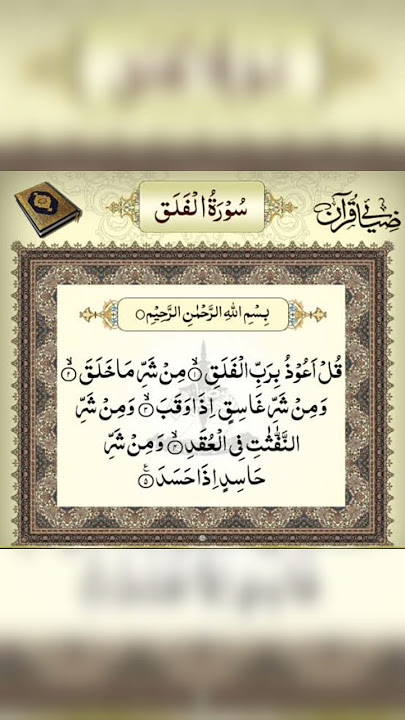 سُوْرَةُ الْفَلَقِ
ضیائے قرآن
بِسْمِ اللهِ الرَّحْمٰنِ الرَّحِيْمِ○
قُلْ اَعُوْذُ بِرَبِّ الْفَلَقِ ۙ﴿۱﴾ مِنْ شَرِّ مَا خَلَقَ ۙ﴿۲﴾
وَمِنْ شَرِّ غَاسِقٍ اِذَا وَقَبَ ۙ﴿۳﴾ وَمِنْ شَرِّ
النَّفّٰثٰتِ فِی الْعُقَدِ ۙ﴿۴﴾ وَمِنْ شَرِّ
حَاسِدٍ اِذَا حَسَدَ ﴿۵﴾ ع